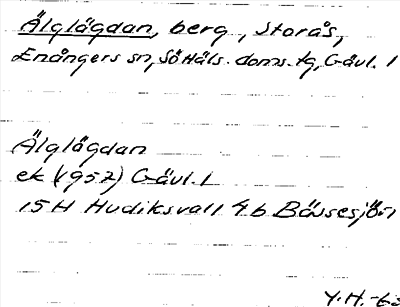 Älglägdan, berg, Storås,
Enångers sn, SöHäls. doms. tg, Gävl. l
Älglägdan
ek (1952) Gävl. l
15H Hudiksvall 4b Bässesjön
Y.H.